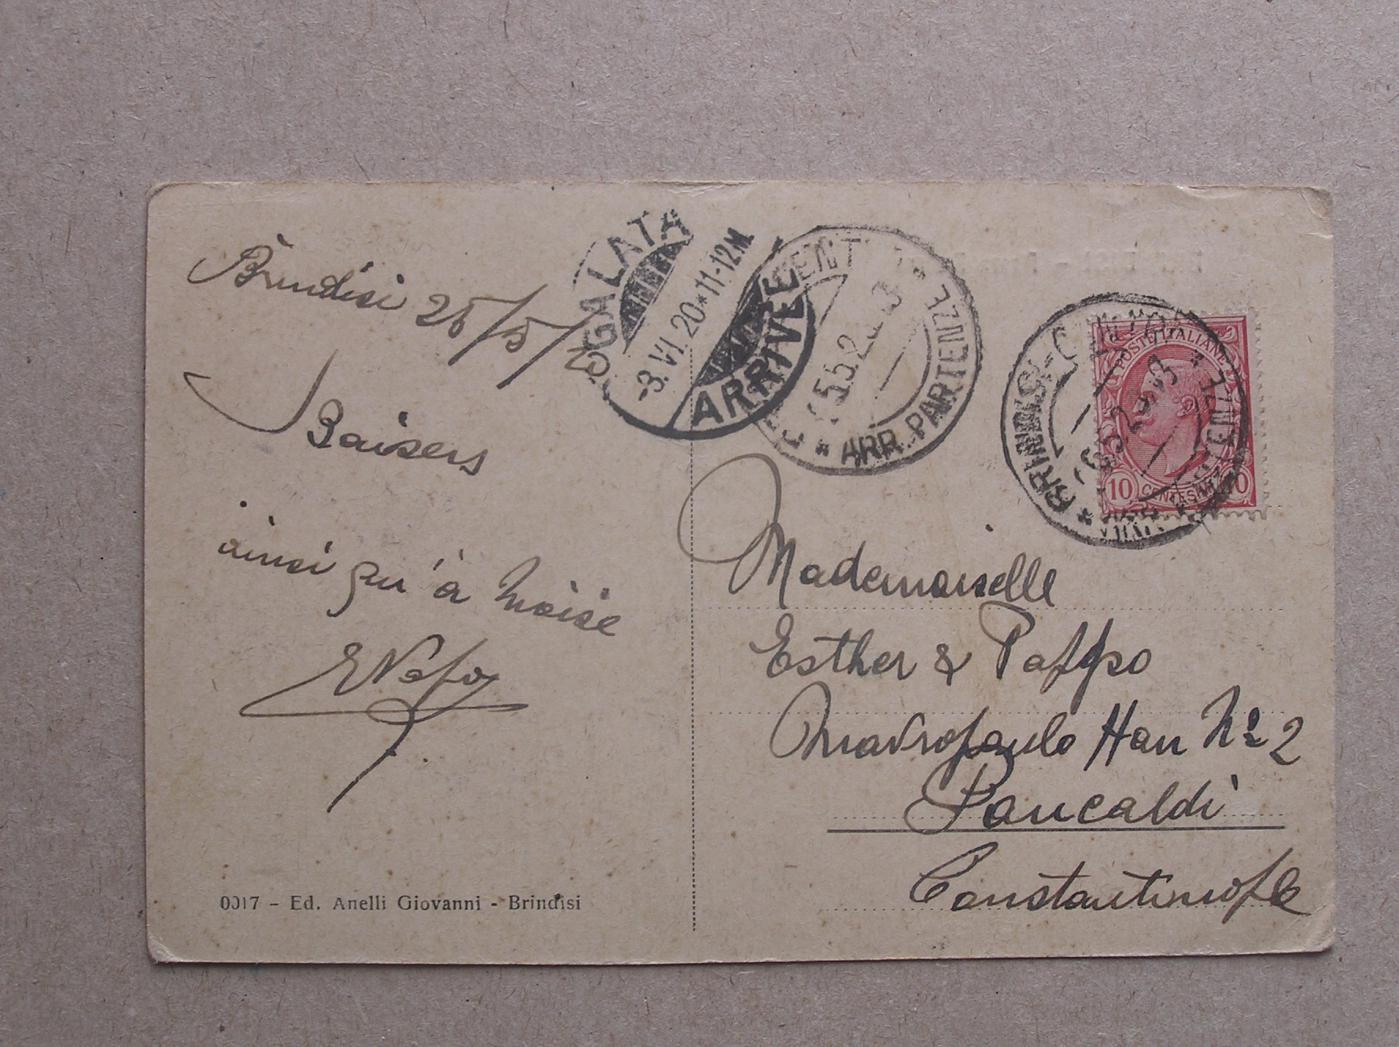 Brindisi 25/5/20
Baisers
ainsi qu'à Moïse
GALATA
-3. VI. 20*11-12M.
ARRIVEE
ARR. PARTENZE
BRINDISI
POSTE ITALIANE
10
Mademoiselle
Esther &
Mavropoulo Han No 2
Pancaldi
Constantinople
0017 - Ed. Anelli Giovanni - Brindisi